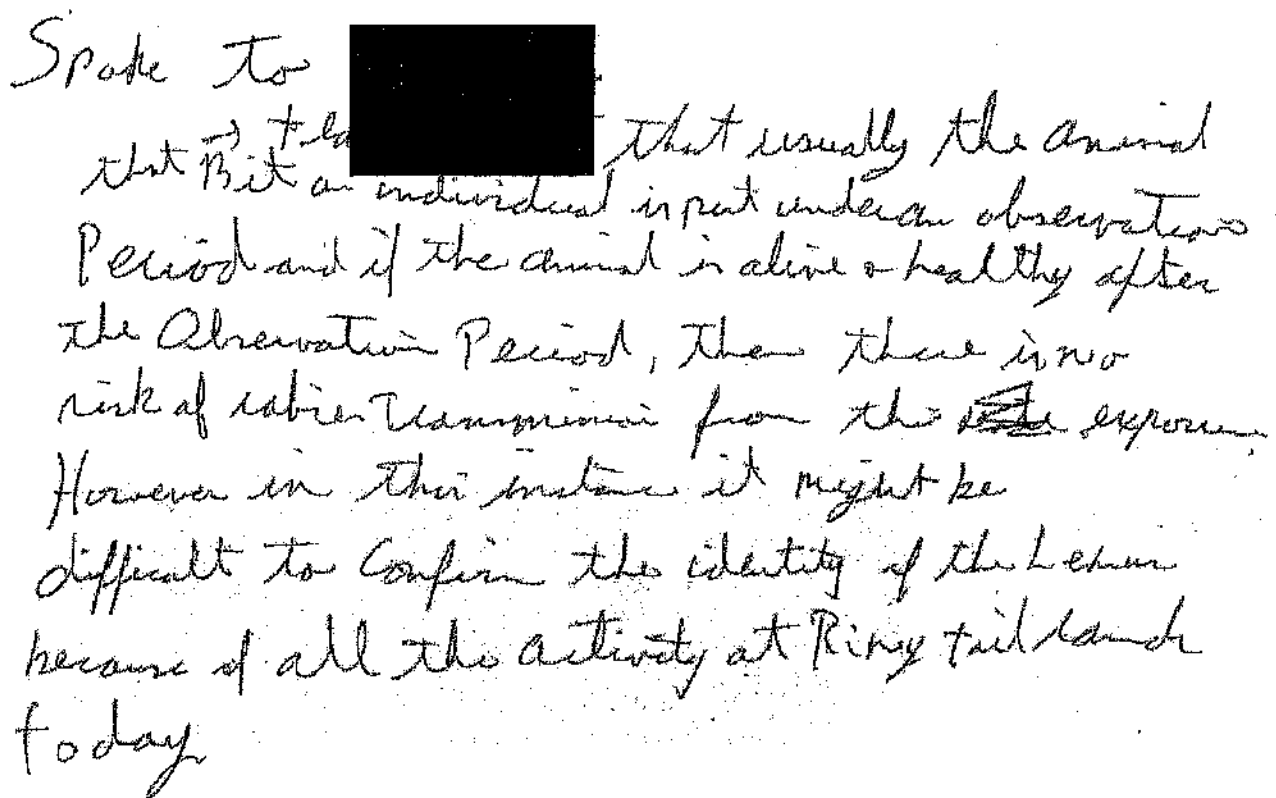 Spoke to
→ that usually the animal
that Bit an individual is put under an observation
Period and if the animal is alive & healthy after
the Observation Period, then there is no
risk of rabies Transmission from the exposure.
However in this instance it might be
difficult to Confirm the identity of the Lemur
because of all the activity at Ring tail ranch
today